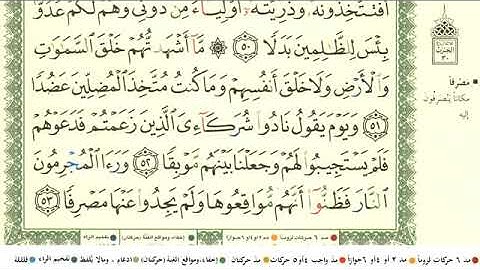 أَفَتَتَّخِذُونَهُۥ وَذُرِّيَّتَهُۥٓ أَوْلِيَآءَ مِن دُونِى وَهُمْ لَكُمْ عَدُوٌّۢ
بِئْسَ لِلظَّـٰلِمِينَ بَدَلًا ٥٠ ۞ مَّآ أَشْهَدتُّهُمْ خَلْقَ ٱلسَّمَـٰوَٰتِ
وَٱلْأَرْضِ وَلَا خَلْقَ أَنفُسِهِمْ وَمَا كُنتُ مُتَّخِذَ ٱلْمُضِلِّينَ عَضُدًا
٥١ وَيَوْمَ يَقُولُ نَادُوا۟ شُرَكَآءِىَ ٱلَّذِينَ زَعَمْتُمْ فَدَعَوْهُمْ
فَلَمْ يَسْتَجِيبُوا۟ لَهُمْ وَجَعَلْنَا بَيْنَهُم مَّوْبِقًا ٥٢ وَرَءَا ٱلْمُجْرِمُونَ
ٱلنَّارَ فَظَنُّوٓا۟ أَنَّهُم مُّوَاقِعُوهَا وَلَمْ يَجِدُوا۟ عَنْهَا مَصْرِفًا ٥٣
الحزب
٣٠
مصرفاً
مكاناً ينصرفون
إليه
مد ٦ حركات لزوماً مد ٢ أو ٤ أو ٦ جوازاً مد واجب ٤ أو ٥ حركات مد حركتان إخفاء، ومواقع الغنة (حركتان) ادغام ، ومالا يُلفظ تفخيم الراء قلقلة